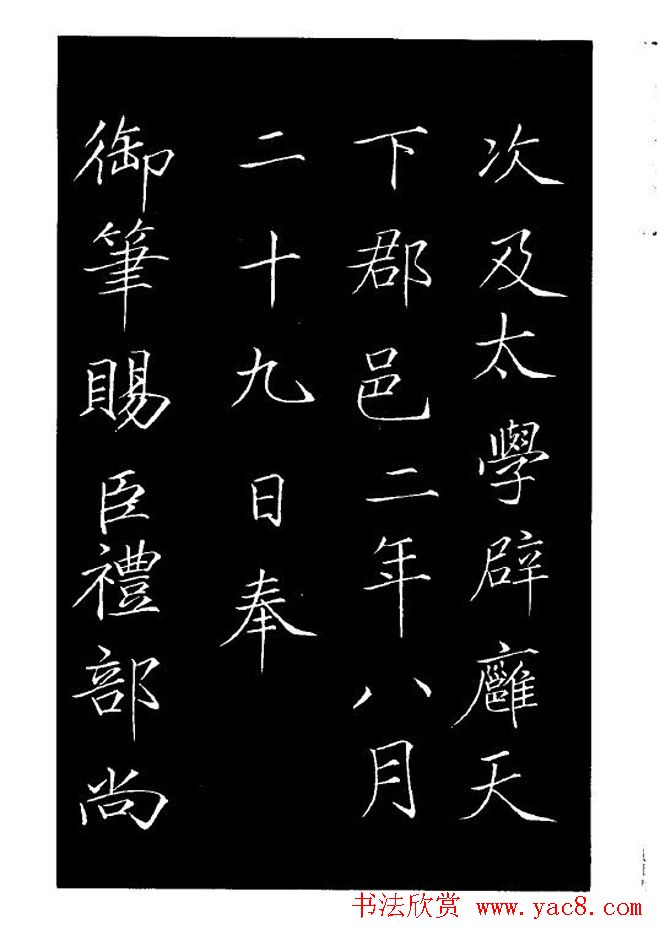 次及太學辟廱天
下郡邑二年八月
二十九日奉
御筆賜臣禮部尚
书法欣赏 www.yac8.com